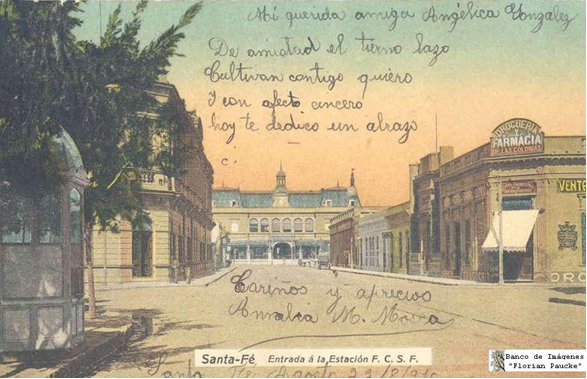 Mi querida amiga Angélica Gonzalez
De amistad el tierno lazo
Cultivar contigo quiero
I con afecto cincero
hoy te dedico un abrazo
DROGUERIA
Y
FARMACIA
DE LAS COLONIAS
VENTE
DRO
Cariños y aprecios
Amalia M.
Santa-Fé Entrada á la Estación F. C. S. F.
Santa Fe Agosto 22/910
Banco de Imágenes
"Florian Paucke"